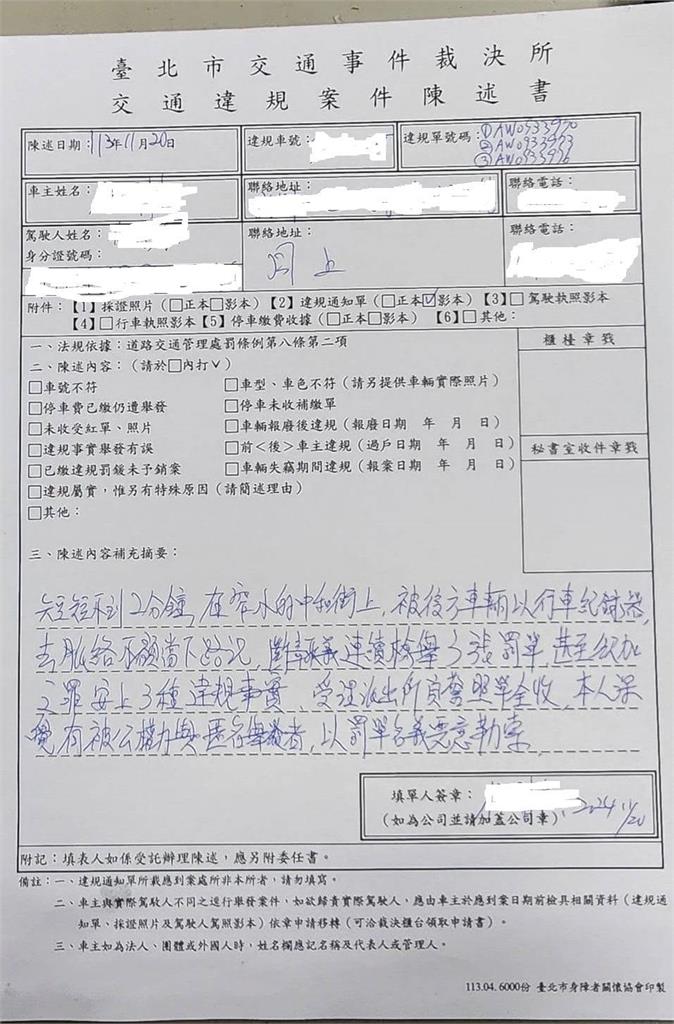 臺北市交通事件裁決所
交通違規案件陳述書
陳述日期：113年11月20日
違規車號：
違規單號碼：①AW0933970
②AW0933973
③AW0933976
車主姓名：
聯絡地址：
聯絡電話：
駕駛人姓名：
身分證號碼：
聯絡地址：
同上
聯絡電話：
附件：【1】採證照片（□正本□影本）【2】違規通知單（□正本☑影本）【3】□駕駛執照影本
【4】□行車執照影本【5】停車繳費收據（□正本□影本）【6】□其他：
一、法規依據：道路交通管理處罰條例第八條第二項
二、陳述內容：（請於□內打∨）
□車號不符
□車型、車色不符（請另提供車輛實際照片）
□停車費已繳仍遭舉發
□停車未收補繳單
□未收受紅單、照片
□車輛報廢後違規（報廢日期　年　月　日）
□違規事實舉發有誤
□前<後>車主違規（過戶日期　年　月　日）
□已繳違規罰鍰未予銷案
□車輛失竊期間違規（報案日期　年　月　日）
□違規屬實，惟另有特殊原因（請簡述理由）
□其他：
櫃檯章戳
秘書室收件章戳
三、陳述內容補充摘要：
短短不到2分鐘，在窄小的中和街上，被後方車輛以行車紀錄器，
去脈絡不顧當下路況，斷章取義連續檢舉3張罰單，甚至欲加
之罪安上3種違規事實，受理派出所員警照單全收，本人深
覺有被公權力與匿名舉發者，以罰單名義惡意勒索
填單人簽章：
（如為公司並請加蓋公司章）
2024 11/20
附記：填表人如係受託辦理陳述，應另附委任書。
備註：一、違規通知單所載應到案處所非本所者，請勿填寫。
二、車主與實際駕駛人不同之逕行舉發案件，如欲歸責實際駕駛人，應由車主於應到案日期前檢具相關資料（違規通
知單、採證照片及駕駛人駕照影本）依章申請移轉（可洽裁決櫃台領取申請書）。
三、車主如為法人、團體或外國人時，姓名欄應記名稱及代表人或管理人。
113.04.6000份 臺北市身障者關懷協會印製